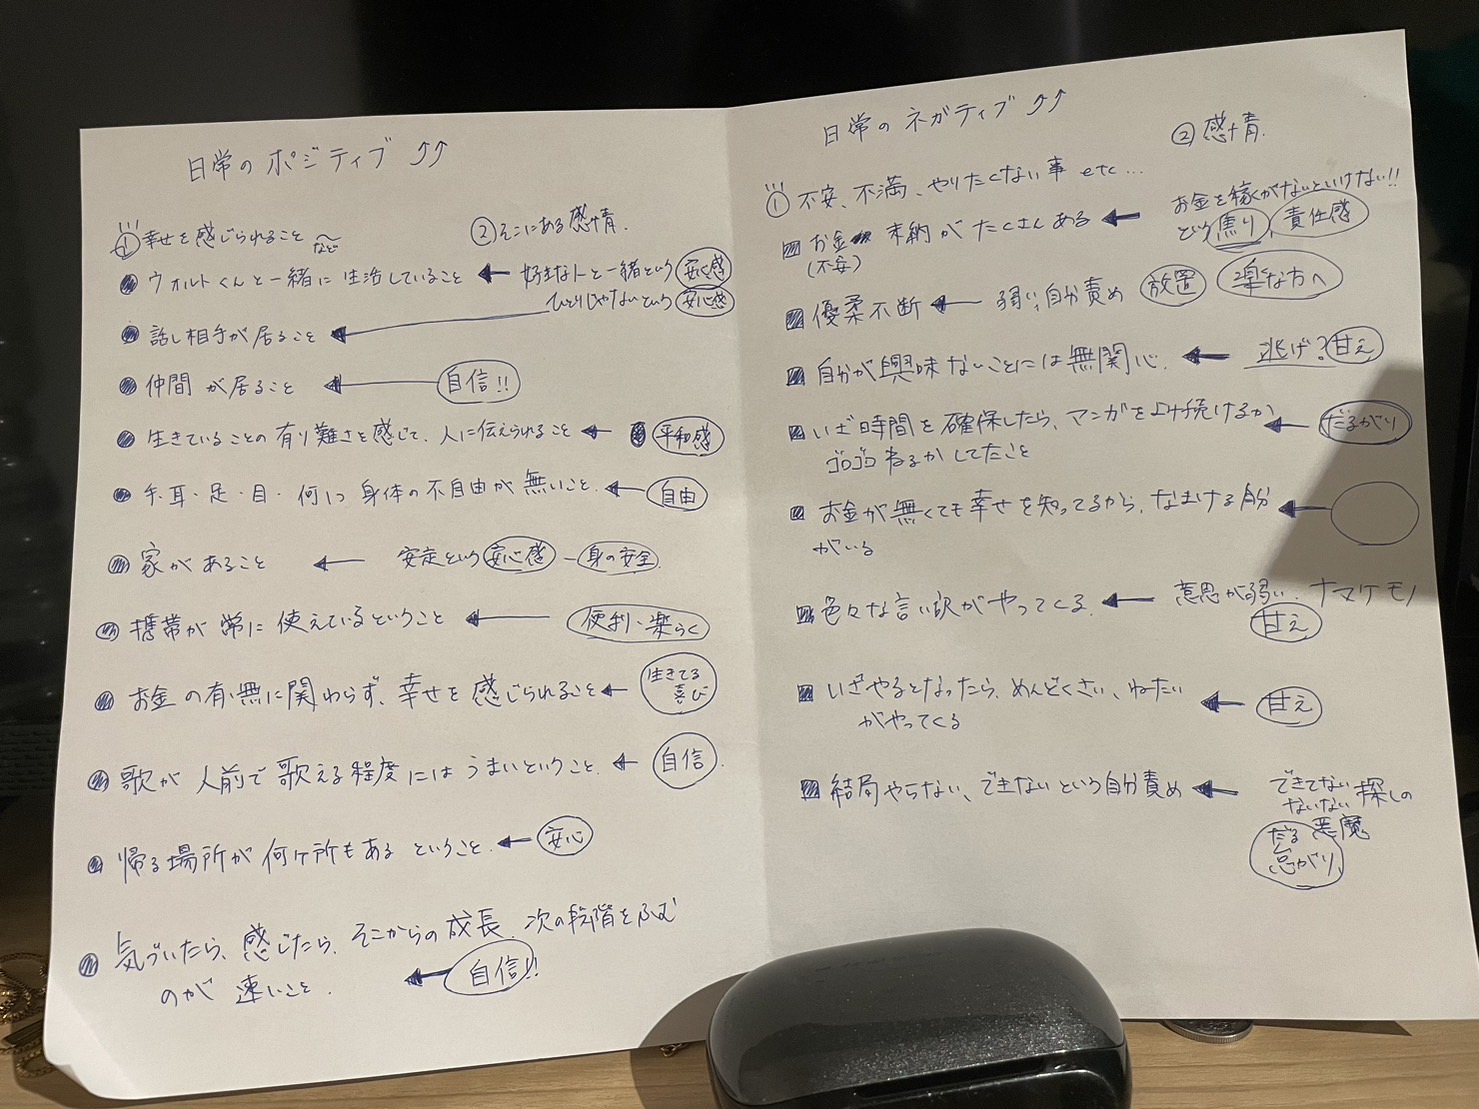 日常のポジティブ ⤴⤴
① 幸せを感じられること など
② そこにある感情.
● ウォルトくんと一緒に生活していること ← 好きな人と一緒という安心感
ひとりじゃないという安心感
● 話し相手が居ること ←
● 仲間が居ること ← 自信!!
● 生きていることの有り難さを感じて、人に伝えられること ← 平和感
● 手・耳・足・目・何1つ身体の不自由が無いこと. ← 自由
● 家があること ← 安定という安心感 – 身の安全
● 携帯が常に使えているということ ← 便利・楽らく
● お金の有・無に関わらず、幸せを感じられること ← 生きてる
喜び
● 歌が人前で歌える程度にはうまいということ. ← 自信.
● 帰る場所が何ヶ所もあるということ. ← 安心
● 気づいたら、感じたら、そこからの成長、次の段階をふむ
のが速いこと. ← 自信!!
日常のネガティブ ⤴⤴
② 感情.
① 不安、不満、やりたくない事 etc…
■ お金 未納がたくさんある ← お金を稼がないといけない!!
(不安)
という焦り、責任感
■ 優柔不断 ← 弱い、自分責め 放置 楽な方へ
■ 自分が興味ないことには無関心. ← 逃げ?甘え
■ いざ時間を確保したら、マンガをよみ続けるか
ゴロゴロねるかしてたこと ← だるがり
■ お金が無くても幸せを知ってるから、なまける自分
がいる ←
■ 色々な言い訳がやってくる. ← 意思が弱い. ナマケモノ
甘え
■ いざやるとなったら、めんどくさい、ねたい
がやってくる ← 甘え
■ 結局やらない、できないという自分責め ← できてない
ないない探しの
悪魔
だる
怠がり